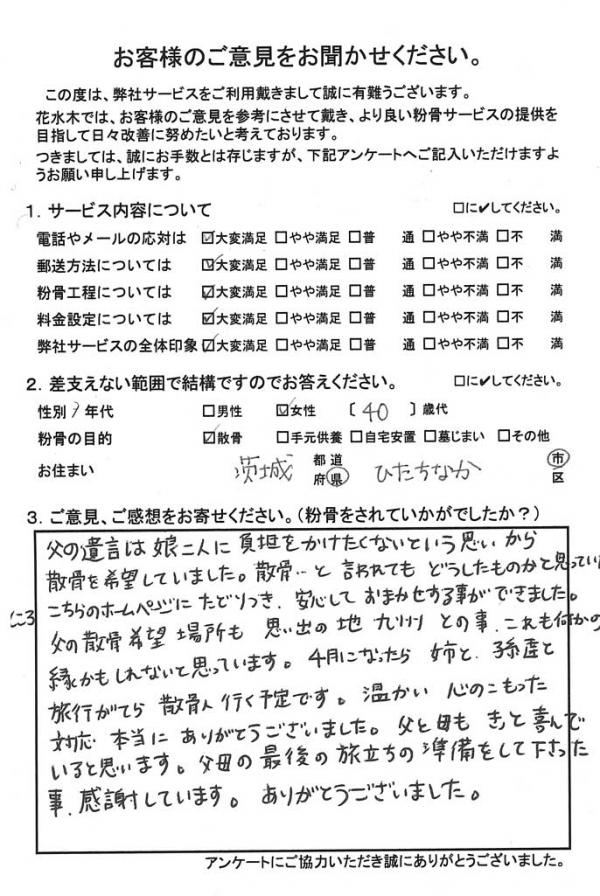 お客様のご意見をお聞かせください。
この度は、弊社サービスをご利用戴きまして誠に有難うございます。
花水木では、お客様のご意見を参考にさせて戴き、より良い粉骨サービスの提供を
目指して日々改善に努めたいと考えております。
つきましては、誠にお手数とは存じますが、下記アンケートへご記入いただけますよ
うお願い申し上げます。
1．サービス内容について □に✔してください。
電話やメールの応対は ☑大変満足 □やや満足 □普 通 □やや不満 □不 満
郵送方法については ☑大変満足 □やや満足 □普 通 □やや不満 □不 満
粉骨工程については ☑大変満足 □やや満足 □普 通 □やや不満 □不 満
料金設定については ☑大変満足 □やや満足 □普 通 □やや不満 □不 満
弊社サービスの全体印象 ☑大変満足 □やや満足 □普 通 □やや不満 □不 満
2．差支えない範囲で結構ですのでお答えください。 □に✔してください。
性別／年代 □男性 ☑女性 〔 40 〕歳代
粉骨の目的 ☑散骨 □手元供養 □自宅安置 □墓じまい □その他
お住まい 茨城 都 道 府 県 ひたちなか 市 区
3．ご意見、ご感想をお寄せください。（粉骨をされていかがでしたか？）
父の遺言は娘二人に負担をかけたくないという思いから
散骨を希望していました。散骨…と言われてもどうしたものかと思ってい
たころ
こちらのホームページにたどりつき、安心しておまかせする事ができました。
父の散骨希望場所も思い出の地 九州との事、これも何かの
縁かもしれないと思っています。4月になったら姉と、孫達と
旅行がてら散骨へ行く予定です。温かい心のこもった
対応 本当にありがとうございました。父と母もきっと喜んで
いると思います。父母の最後の旅立ちの準備をして下さった
事、感謝しています。ありがとうございました。
アンケートにご協力いただき誠にありがとうございました。